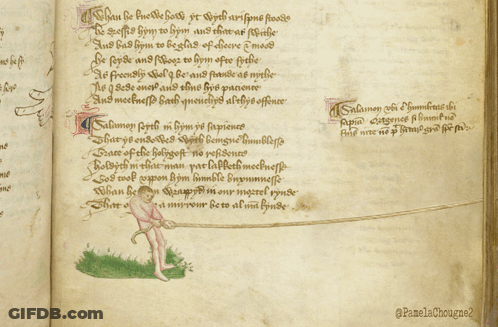 Whan he knewe how yt wyth arispus stoode
he dressid hym to hym and that as swithe
And bad hym to be glad of cheere & mood
he seyde and swoor to hym ofte sythe
As freendly wol I be and stande as
As I dede euer and thus hys pacience
And meeknesse hath queinchyd al thys offence
Salamon seyth in hym ys sapience
That ys endowed wyth benigne humblesse
Grace of the holygost no residence
holdyth in that man yat lakketh meeknesse
God took vppon hym humble buxumnesse
Whan he wrappyd in our mortel rynde
That a mirrour be to al man kynde
Salamon vbi est humilitas ibi
sapia Origenes si humil
GIFDB.com
@PamelaChougne2